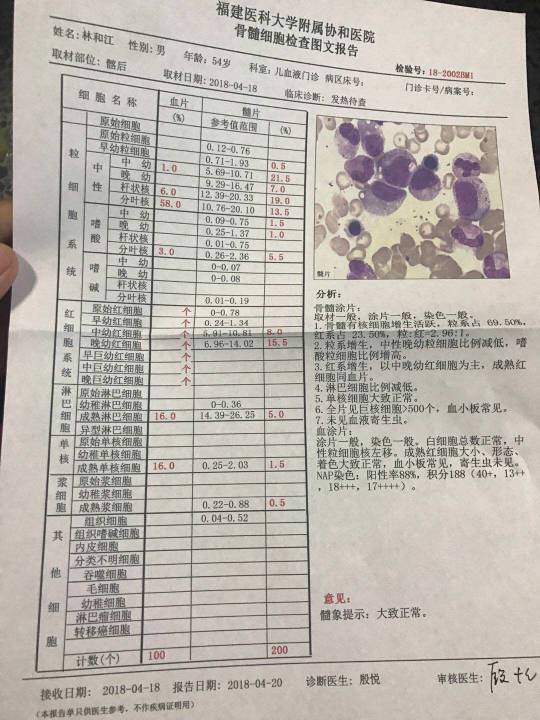 福建医科大学附属协和医院
骨髓细胞检查图文报告
姓名: 林和江 性别: 男 年龄: 54岁 科室: 儿血液门诊 病区床号: 检验号: 18-2002BM1
取材部位: 髂后 取材日期: 2018-04-18 临床诊断: 发热待查 门诊卡号/病案号:
细胞名称 血片(%) 髓片
参考值范围 (%)
粒细胞系统
原始细胞
原始粒细胞
早幼粒细胞 0.12-0.76
中性 中幼 1.0 0.71-1.93 0.5
晚幼 5.69-10.71 21.5
杆状核 6.0 9.29-16.47 7.0
分叶核 58.0 12.39-20.33 19.0
嗜酸 中幼 10.76-20.10 13.5
晚幼 0.09-0.75 1.5
杆状核 0.25-1.37 1.0
分叶核 3.0 0.01-0.75
0.26-2.36 5.5
嗜碱 中幼 0-0.07
晚幼 0-0.08
杆状核
分叶核 0.01-0.19
红细胞系统
原始红细胞 个 0-0.78
早幼红细胞 个 0.24-1.34
中幼红细胞 个 5.91-10.81 8.0
晚幼红细胞 个 6.96-14.02 15.5
早巨幼红细胞 个
中巨幼红细胞 个
晚巨幼红细胞 个
淋巴细胞
原始淋巴细胞
幼稚淋巴细胞 0-0.36
成熟淋巴细胞 16.0 14.39-26.25 5.0
异型淋巴细胞
单核
原始单核细胞
幼稚单核细胞
成熟单核细胞 16.0 0.25-2.03 1.5
浆细胞
原始浆细胞
幼稚浆细胞
成熟浆细胞 0.22-0.88 0.5
其他细胞
组织细胞 0.04-0.52
组织嗜碱细胞
内皮细胞
分类不明细胞
吞噬细胞
毛细胞
幼稚细胞
淋巴瘤细胞
转移癌细胞
计数(个) 100 200
髓片
分析:
骨髓涂片:
取材一般, 涂片一般, 染色一般。
1.骨髓有核细胞增生活跃, 粒系占 69.50%,
红系占 23.50%, 粒:红=2.96:1。
2.粒系增生, 中性晚幼粒细胞比例减低, 嗜
酸粒细胞比例增高。
3.红系增生, 以中晚幼红细胞为主, 成熟红
细胞同血片。
4.淋巴细胞比例减低。
5.单核细胞大致正常。
6.全片见巨核细胞>500个, 血小板常见。
7.未见血液寄生虫。
血涂片:
涂片一般, 染色一般。白细胞总数正常, 中
性粒细胞核左移。成熟红细胞大小、形态、
着色大致正常, 血小板常见, 寄生虫未见。
NAP染色: 阳性率88%, 积分188 (40+, 13++
, 18+++, 17++++)。
意见:
髓象提示: 大致正常。
接收日期: 2018-04-18 报告日期: 2018-04-20 诊断医生: 殷悦 审核医生:
(本报告单只供医生参考, 不作疾病证明用)